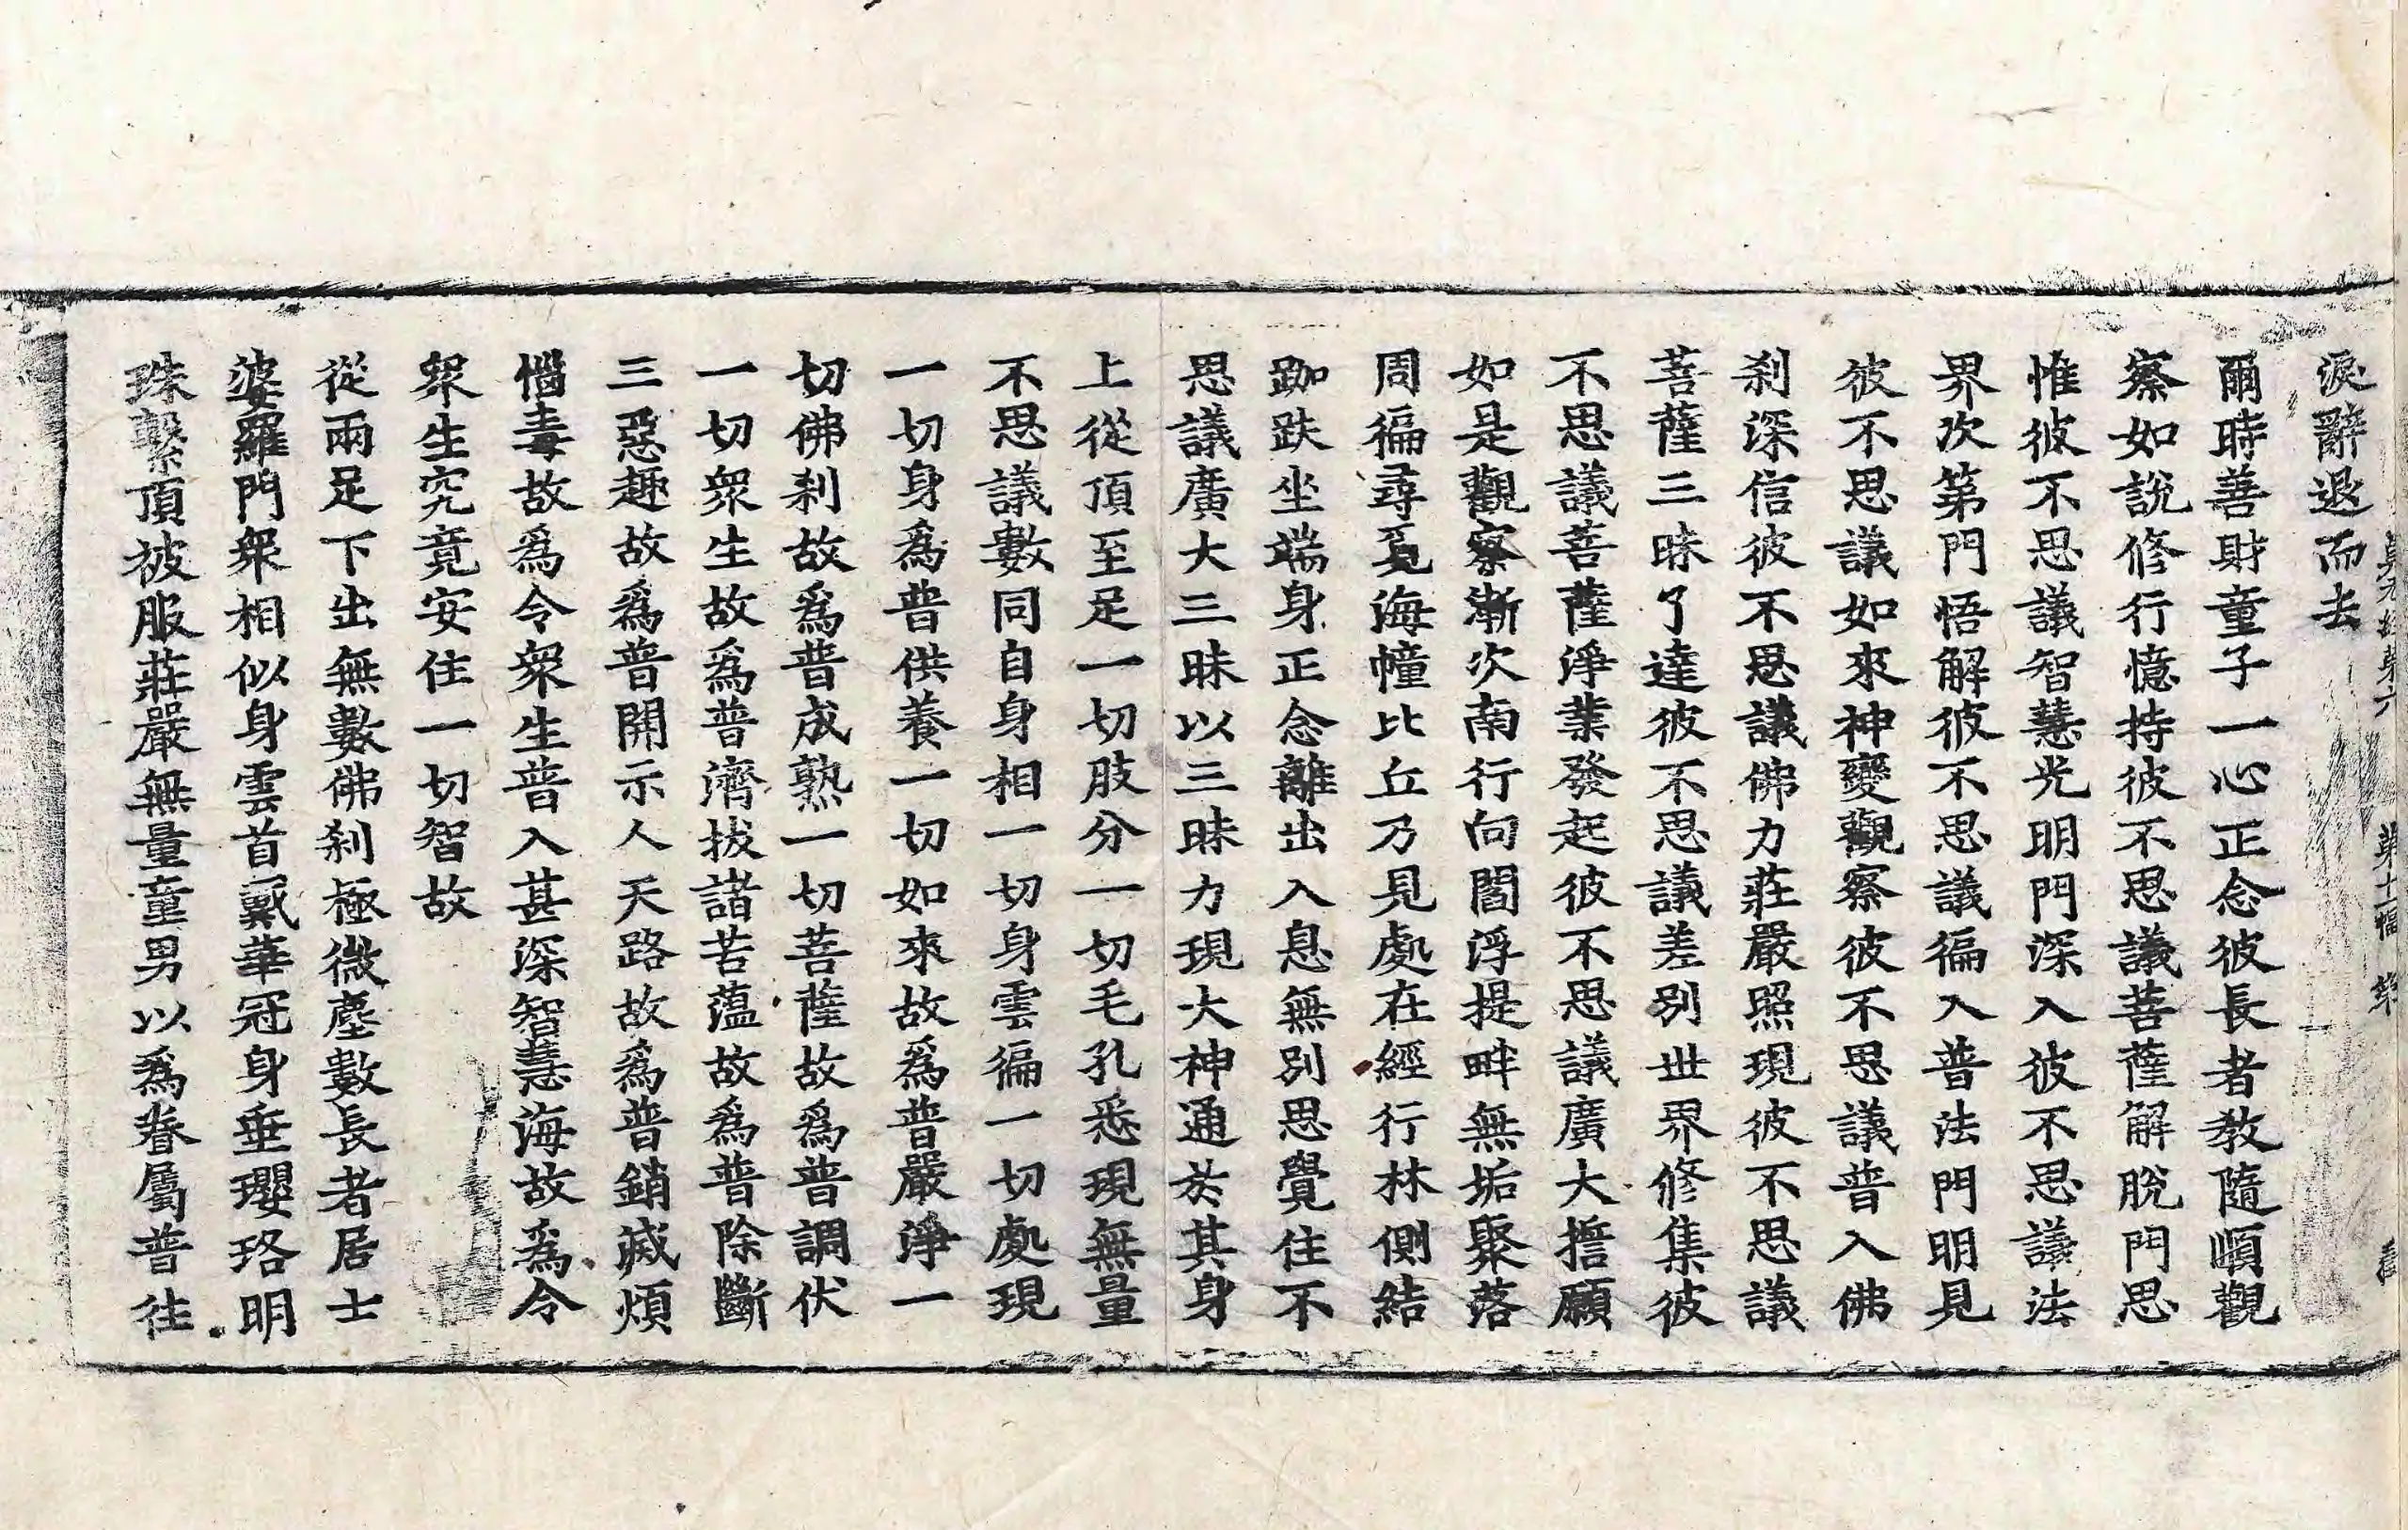 淚辭退而去
爾時善財童子一心正念彼長者教隨順觀
察如說修行憶持彼不思議菩薩解脫門思
惟彼不思議智慧光明門深入彼不思議法
界次第門悟解彼不思議徧入普法門明見
彼不思議如來神變觀察彼不思議普入佛
刹深信彼不思議佛力莊嚴照現彼不思議
菩薩三昧了達彼不思議差別世界修集彼
不思議菩薩淨業發起彼不思議廣大擔願
如是觀察漸次南行向閻浮提畔無垢聚落
周徧尋覓海幢比丘乃見處在經行林側結
跏趺坐端身正念離出入息無別思覺住不
思議廣大三昧以三昧力現大神通於其身
上從頂至足一切肢分一切毛孔悉現無量
不思議數同自身相一切身雲徧一切處現
一切身爲普供養一切如來故爲普嚴淨一
切佛刹故爲普成熟一切菩薩故爲普調伏
一切衆生故爲普濟拔諸苦蘊故爲普除斷
三惡趣故爲普開示人天路故爲普銷滅煩
惱毒故爲令衆生普入甚深智慧海故爲令
衆生究竟安住一切智故
從兩足下出無數佛刹極微塵數長者居士
婆羅門衆相似身雲首戴華冠身垂瓔珞明
珠繫頂被服莊嚴無量童男以爲眷屬普往